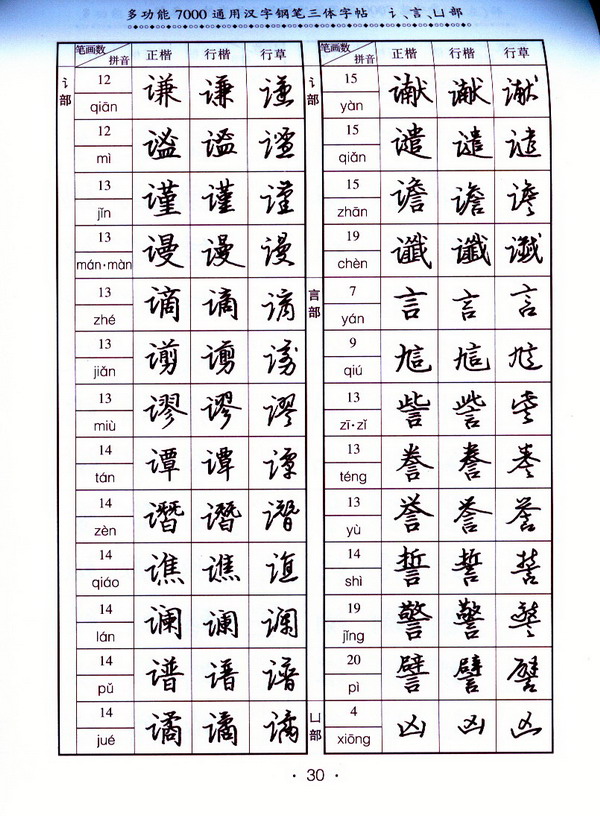 多功能 7000 通用汉字钢笔三体字帖 讠、言、凵部
笔画数 拼音 正楷 行楷 行草
讠部
12 qiān 谦 谦 谦
12 mì 谧 谧 谧
13 jǐn 谨 谨 谨
13 mán·màn 谩 谩 谩
13 zhé 谪 谪 谪
13 jiǎn 谫 谫 谫
13 miù 谬 谬 谬
14 tán 谭 谭 谭
14 zèn 谮 谮 谮
14 qiáo 谯 谯 谯
14 lán 谰 谰 谰
14 pǔ 谱 谱 谱
14 jué 谲 谲 谲
笔画数 拼音 正楷 行楷 行草
讠部
15 yàn 谳 谳 谳
15 qiǎn 谴 谴 谴
15 zhān 谵 谵 谵
19 chèn 谶 谶 谶
言部
7 yán 言 言 言
9 qiú 訄 訄 訄
13 zī·zǐ 訾 訾 訾
13 téng 誊 誊 誊
13 yù 誉 誉 誉
14 shì 誓 誓 誓
19 jǐng 警 警 警
20 pì 譬 譬 譬
凵部
4 xiōng 凶 凶 凶
· 30 ·